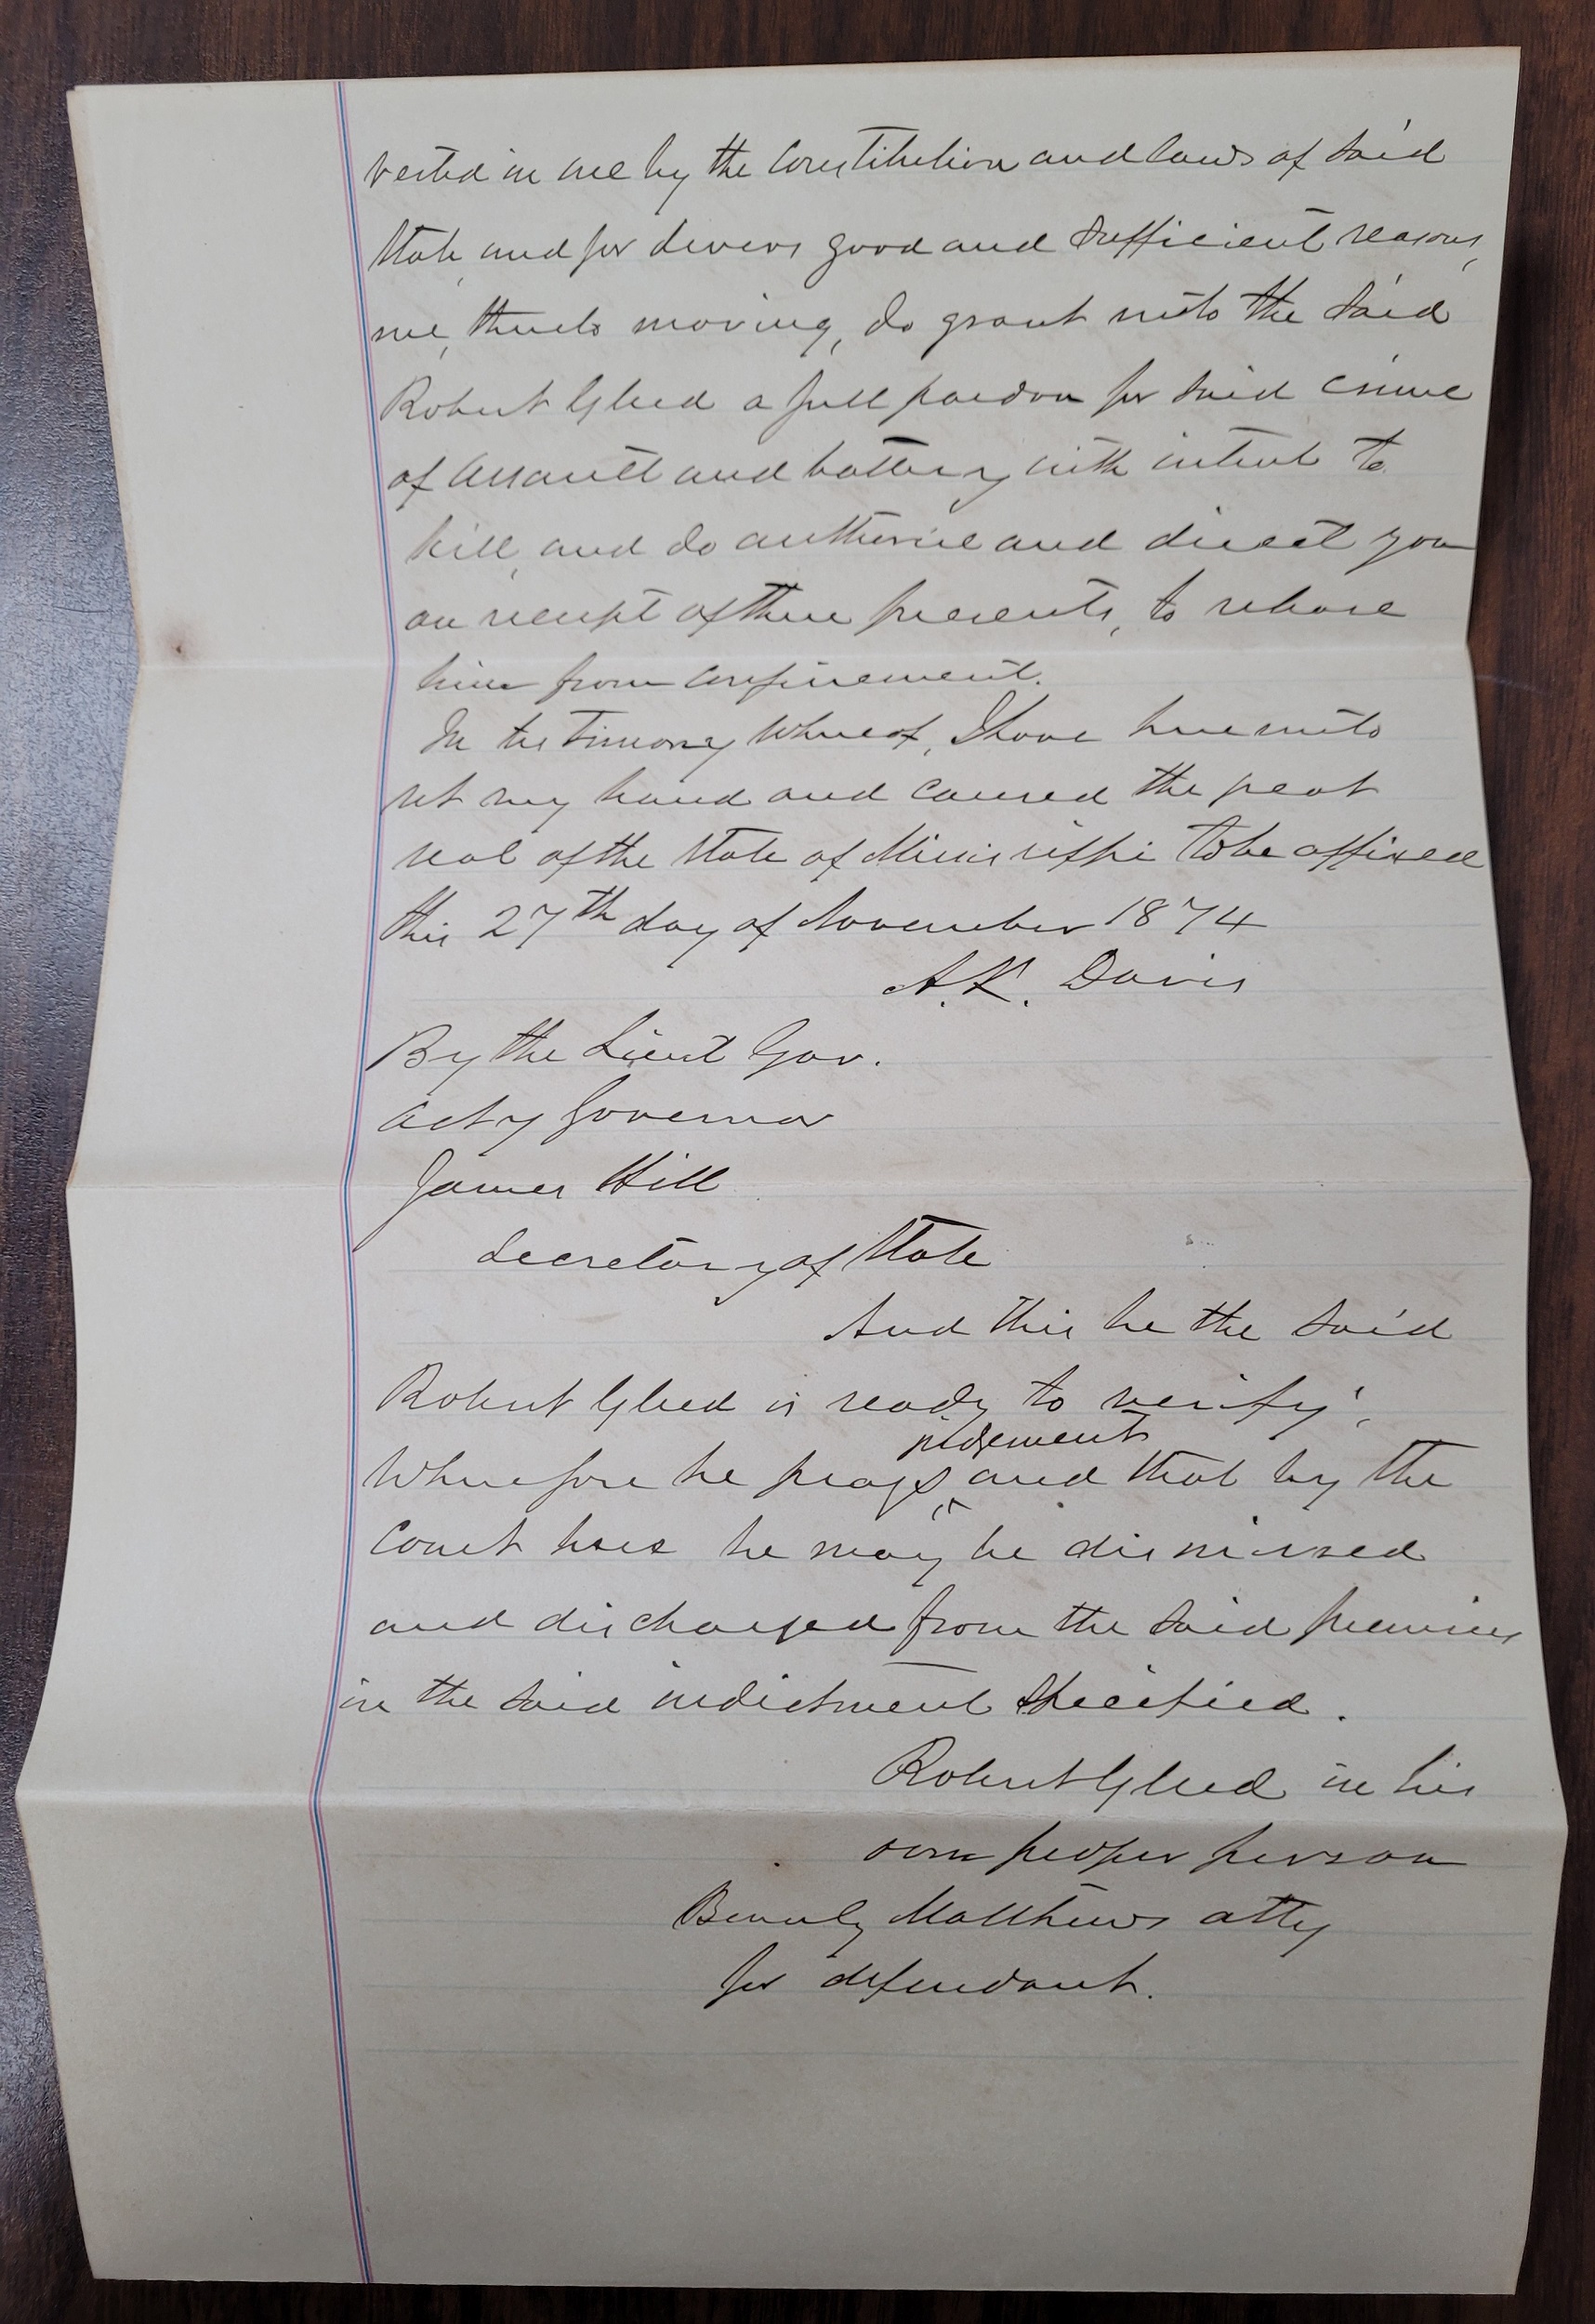 vested in me by the Constitution and laws of said
State, and for divers good and sufficient reasons,
me, thereto moving, do grant unto the said
Robert Gleed a full pardon for said crime
of assault and battery with intent to
kill, and do authorise and direct you
on receipt of these presents, to release
him from confinement.
In testimony whereof, I have hereunto
set my hand and caused the great
seal of the State of Mississippi to be affixed
this 27th day of November 1874
A.K. Davis
By the Lieut Gov.
Actg Governor
James Hill
Secretary of State
And this he the said
Robert Gleed is ready to verify;
judgement
Wherefore he prays and that by the
Court here he may be dismissed
and discharged from the said premises
in the said indictment specified.
Robert Gleed in his
own proper person
Beverly Matthews atty
for defendant.